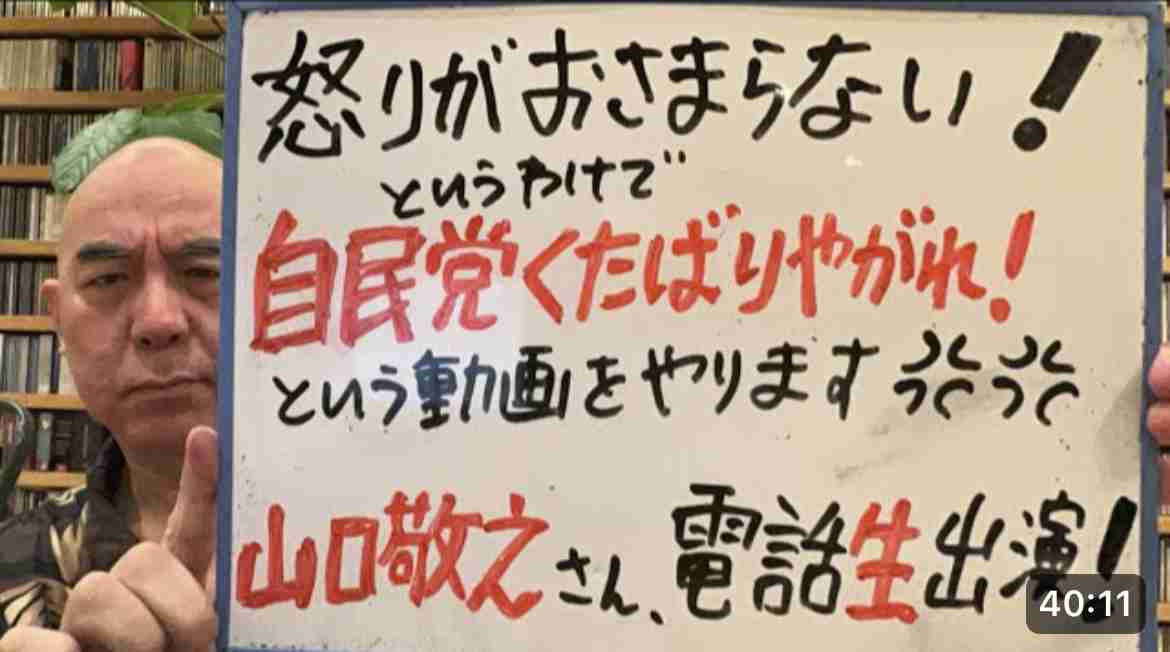 怒りがおさまらない!
というわけで
自民党くたばりやがれ!
という動画をやります
山口敬之さん、電話生出演!
40:11